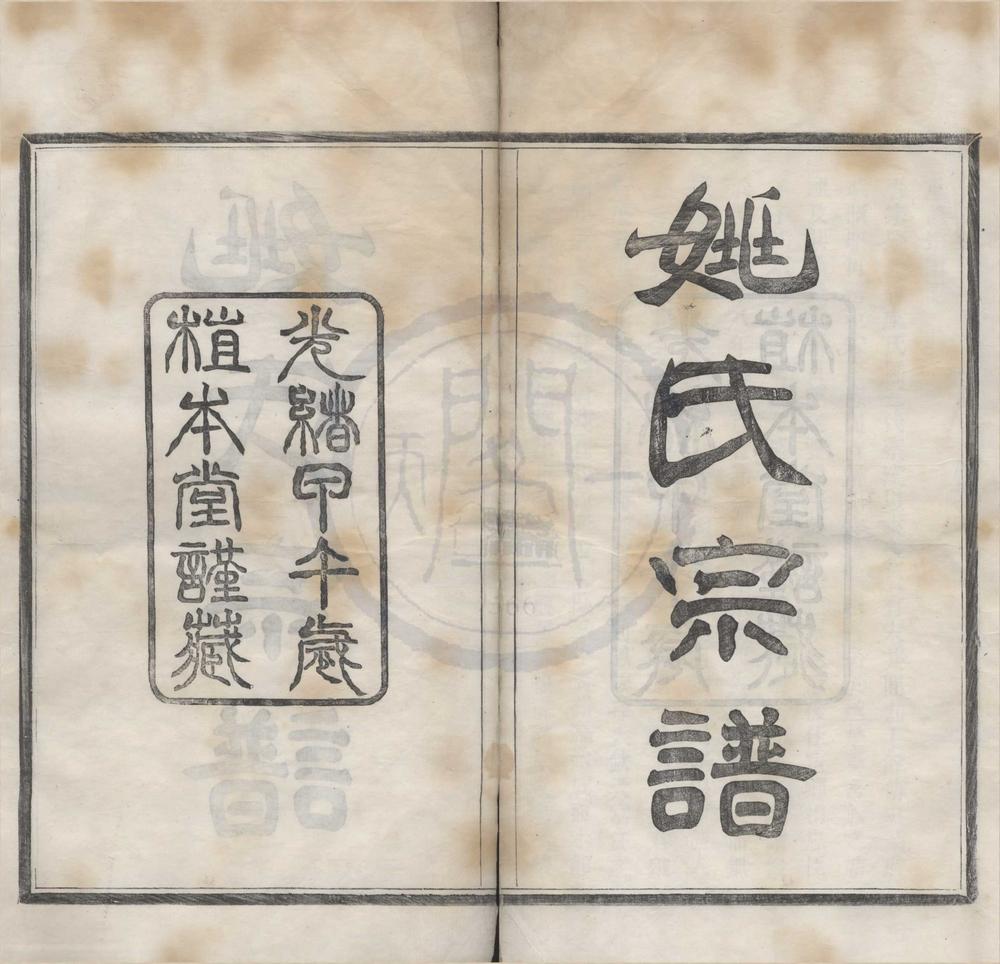 姚氏宗譜
光緒甲午歲
植本堂謹藏
天一閣